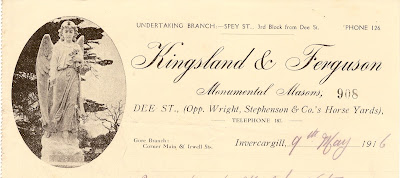 UNDERTAKING BRANCH:—SPEY ST., 3rd Block from Dee St. 'PHONE 126
Kingsland & Ferguson
Monumental Masons,
908
DEE ST., (Opp. Wright, Stephenson & Co.'s Horse Yards),
TELEPHONE 187.
Gore Branch:
Corner Main & Irwell Sts.
Invercargill, 9th May 1916